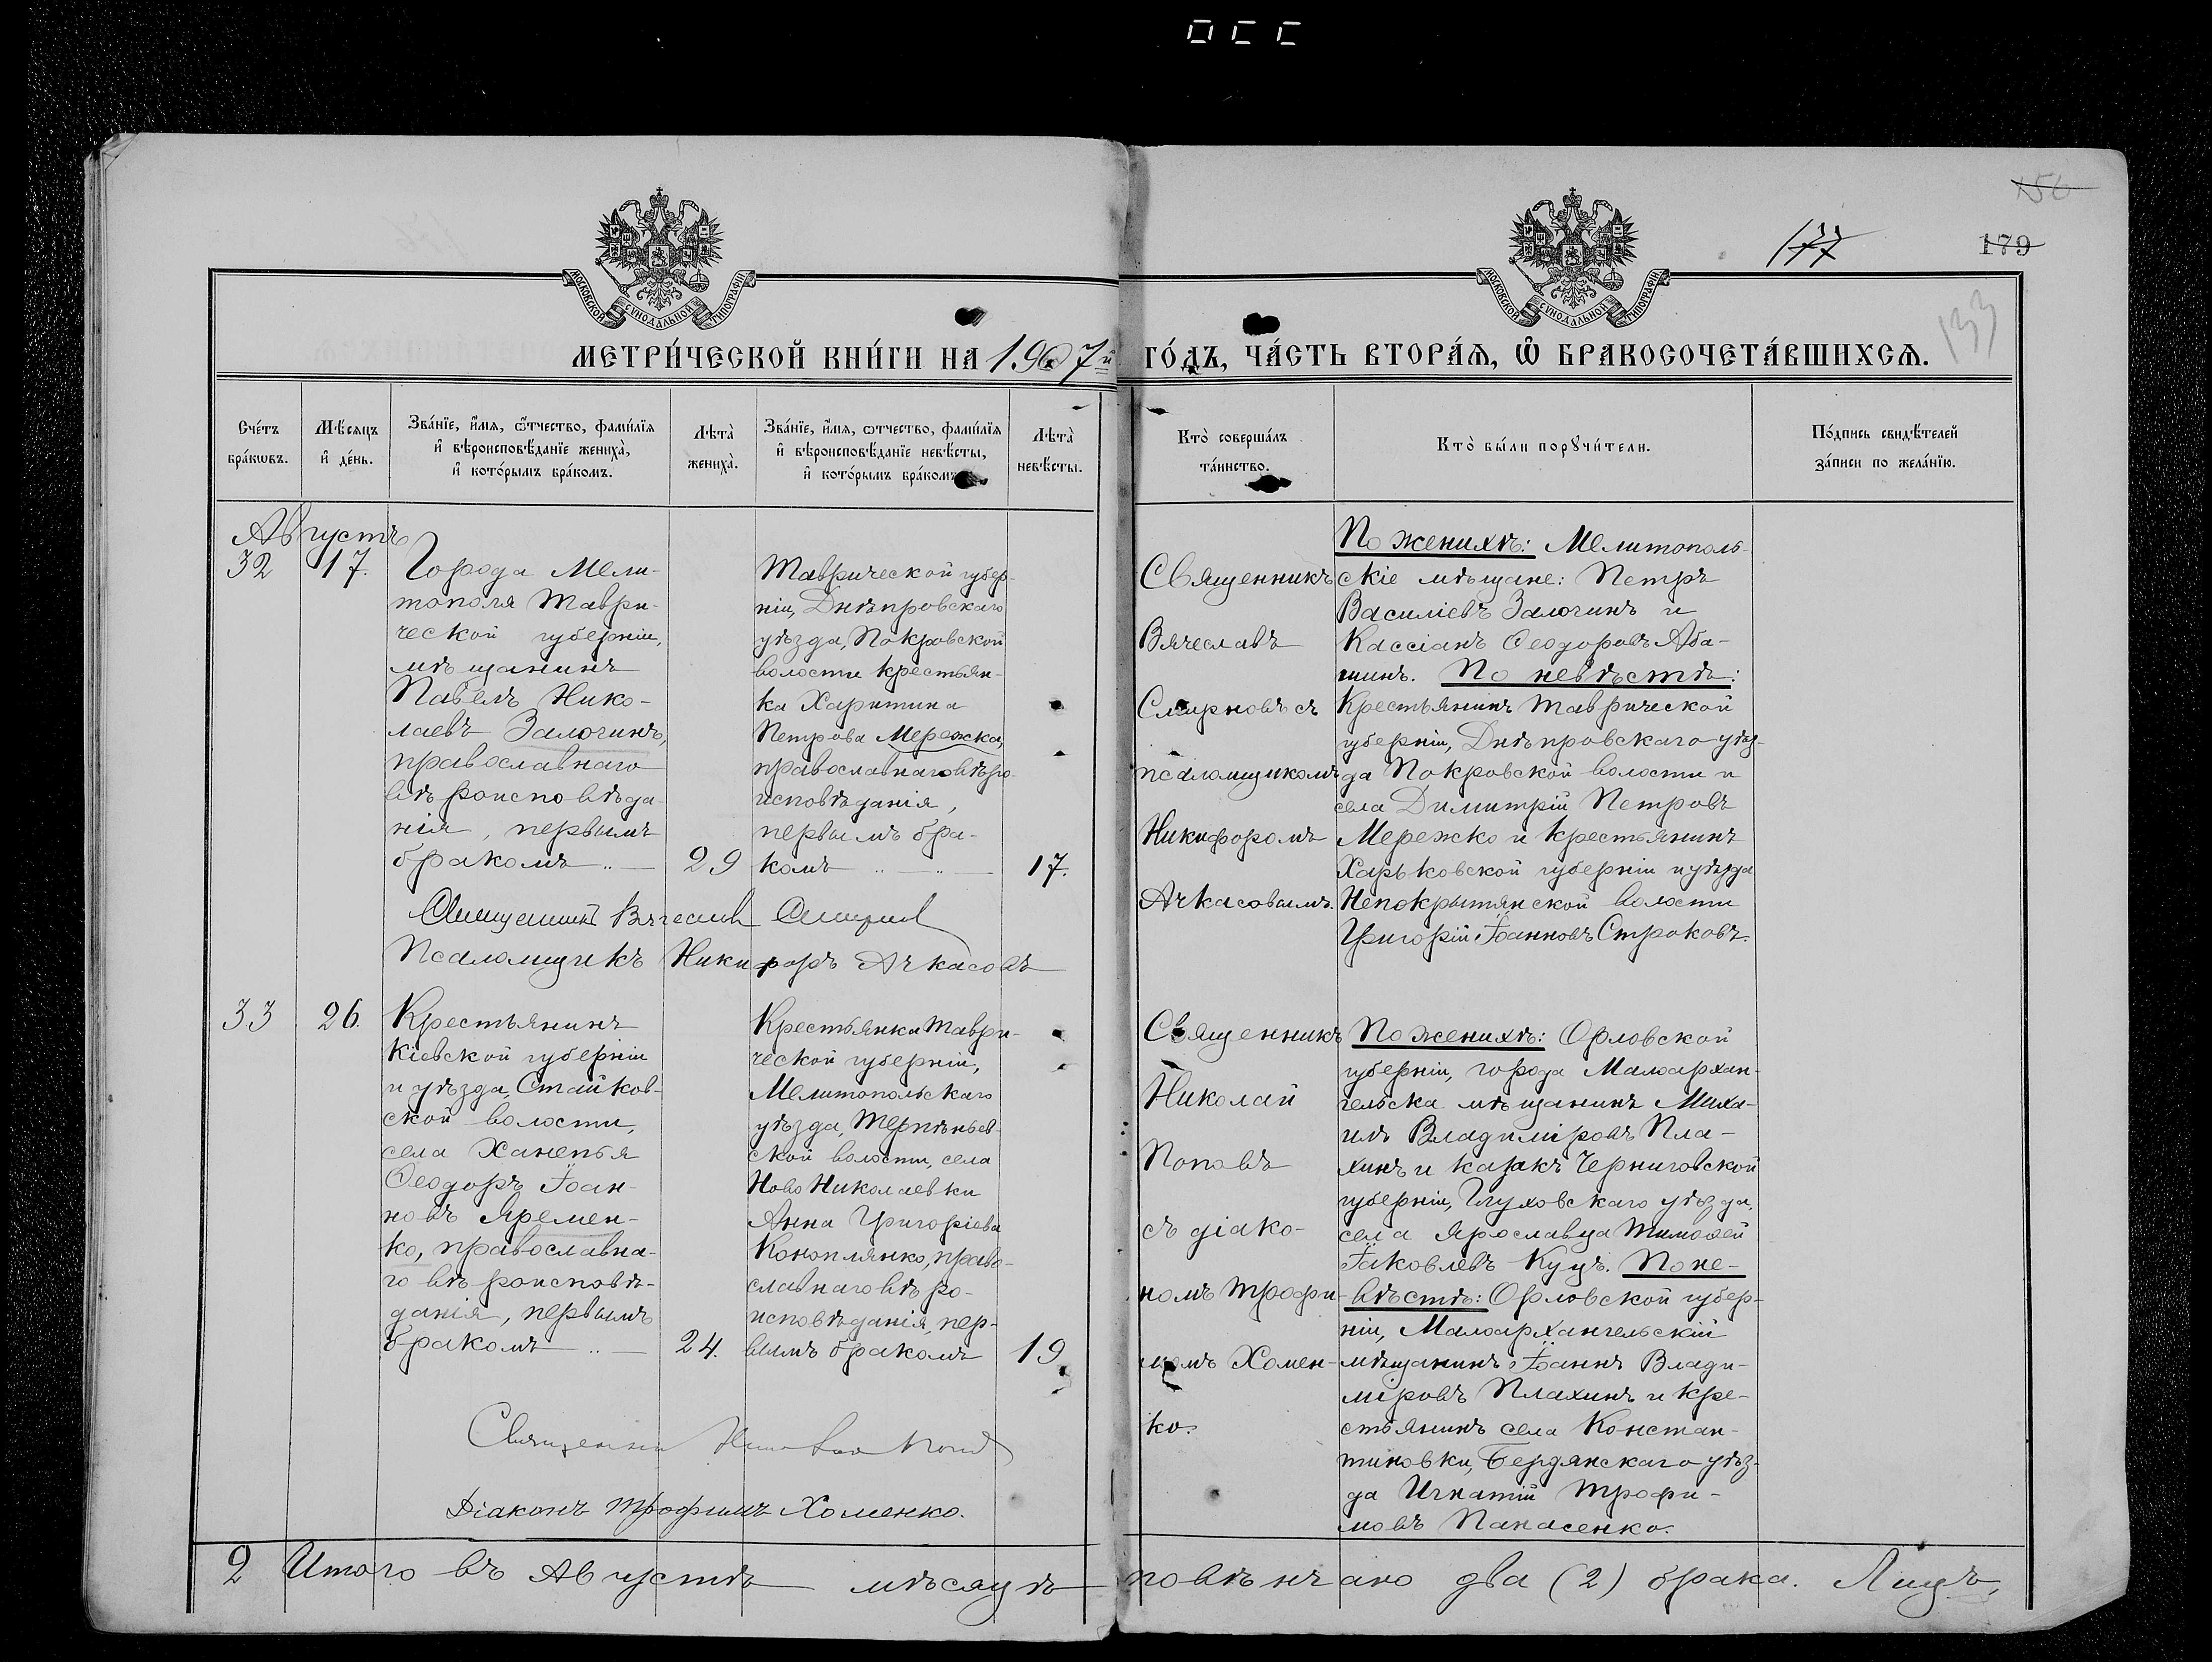 156
177
179
133
МОСКОВСКОЙ СѴНОДАЛЬНОЙ ТИПОГРАФІИ
МОСКОВСКОЙ СѴНОДАЛЬНОЙ ТИПОГРАФІИ
МЕТРИ́ЧЕСКОЙ КНИ́ГИ НА 1907й ГО́ДЪ, ЧА́СТЬ ВТОРА́Ѧ, Ѽ БРАКОСОЧЕТА́ВШИХСѦ.
Сче́тъ
бра́кѡвъ.
Мѣ́сяцъ
и҆ де́нь.
Зва́нїе, и҆́мя, ѻ҆́тчество, фами́лїя
и҆ вѣроисповѣ́данїе жениха̀,
и҆ кото́рымъ бра́комъ.
Лѣта̀
жениха̀.
Зва́нїе, и҆́мя, ѻ҆́тчество, фами́лїя
и҆ вѣроисповѣ́данїе невѣ́сты,
и҆ кото́рымъ бра́комъ
Лѣта̀
невѣ́сты.
Кто̀ соверша́лъ
та́инство.
Кто̀ бы́ли порꙋчи́тели.
По́дпись свидѣ́телей
за́писи по жела́нїю.
Августъ
32
17.
Города Мели-
тополя Таври-
ческой губерніи,
мѣщанинъ
Павелъ Нико-
лаевъ Залогинъ,
православнаго
вѣроисповѣда-
нія, первымъ
бракомъ
29
Таврической губер-
ніи, Днѣпровскаго
уѣзда, Покровской
волости крестьян-
ка Харитина
Петрова Мережка,
православнаго вѣро-
исповѣданія,
первымъ бра-
комъ
17.
Священникъ
Вячеславъ
Смирновъ съ
псаломщикомъ
Никифоромъ
Ачкасовымъ.
По женихѣ: Мелитополь-
скіе мѣщане: Петръ
Василіевъ Залогинъ и
Кассіанъ Ѳеодоровъ Аба-
шинъ. По невѣстѣ:
Крестьянинъ Таврической
губерніи, Днѣпровскаго уѣз-
да Покровской волости и
села Димитрій Петровъ
Мережко и крестьянинъ
Харьковской губерніи и уѣзда
Непокрытянской волости
Григорій Іоанновъ Строковъ.
Священникъ Вячеслав Смирнов
Псаломщикъ Никифоръ Ачкасовъ
33
26.
Крестьянинъ
Кіевской губерніи
и уѣзда, Стайков-
ской волости,
села Ханепья
Ѳеодоръ Іоан-
новъ Яремен-
ко, православна-
го вѣроисповѣ-
данія, первымъ
бракомъ
24.
Крестьянка Таври-
ческой губерніи,
Мелитопольскаго
уѣзда, Терпѣньев-
ской волости, села
Ново Николаевки
Анна Григоріева
Коноплянко, право-
славнаго вѣро-
исповѣданія, пер-
вымъ бракомъ
19
Священникъ
Николай
Поповъ
съ діако-
номъ Трофи-
момъ Хомен-
ко.
По женихѣ: Орловской
губерніи, города Малоархан-
гельска мѣщанинъ Миха-
илъ Владиміровъ Пла-
хинъ и казакъ Черниговской
губерніи, Глуховскаго уѣзда,
села Ярославца Тимоѳей
Іаковлевъ Куцъ. По не-
вѣстѣ: Орловской губер-
ніи, Малоархангельскій
мѣщанинъ Іоаннъ Влади-
міровъ Плахинъ и кре-
стьянинъ села Констан-
тиновки, Бердянскаго уѣз-
да Игнатій Трофи-
мовъ Панасенко.
Священникъ Николай Попов
Діаконъ Трофимъ Хоменко.
2 Итого въ Августѣ мѣсяцѣ повѣнчано два (2) брака. Лицъ,